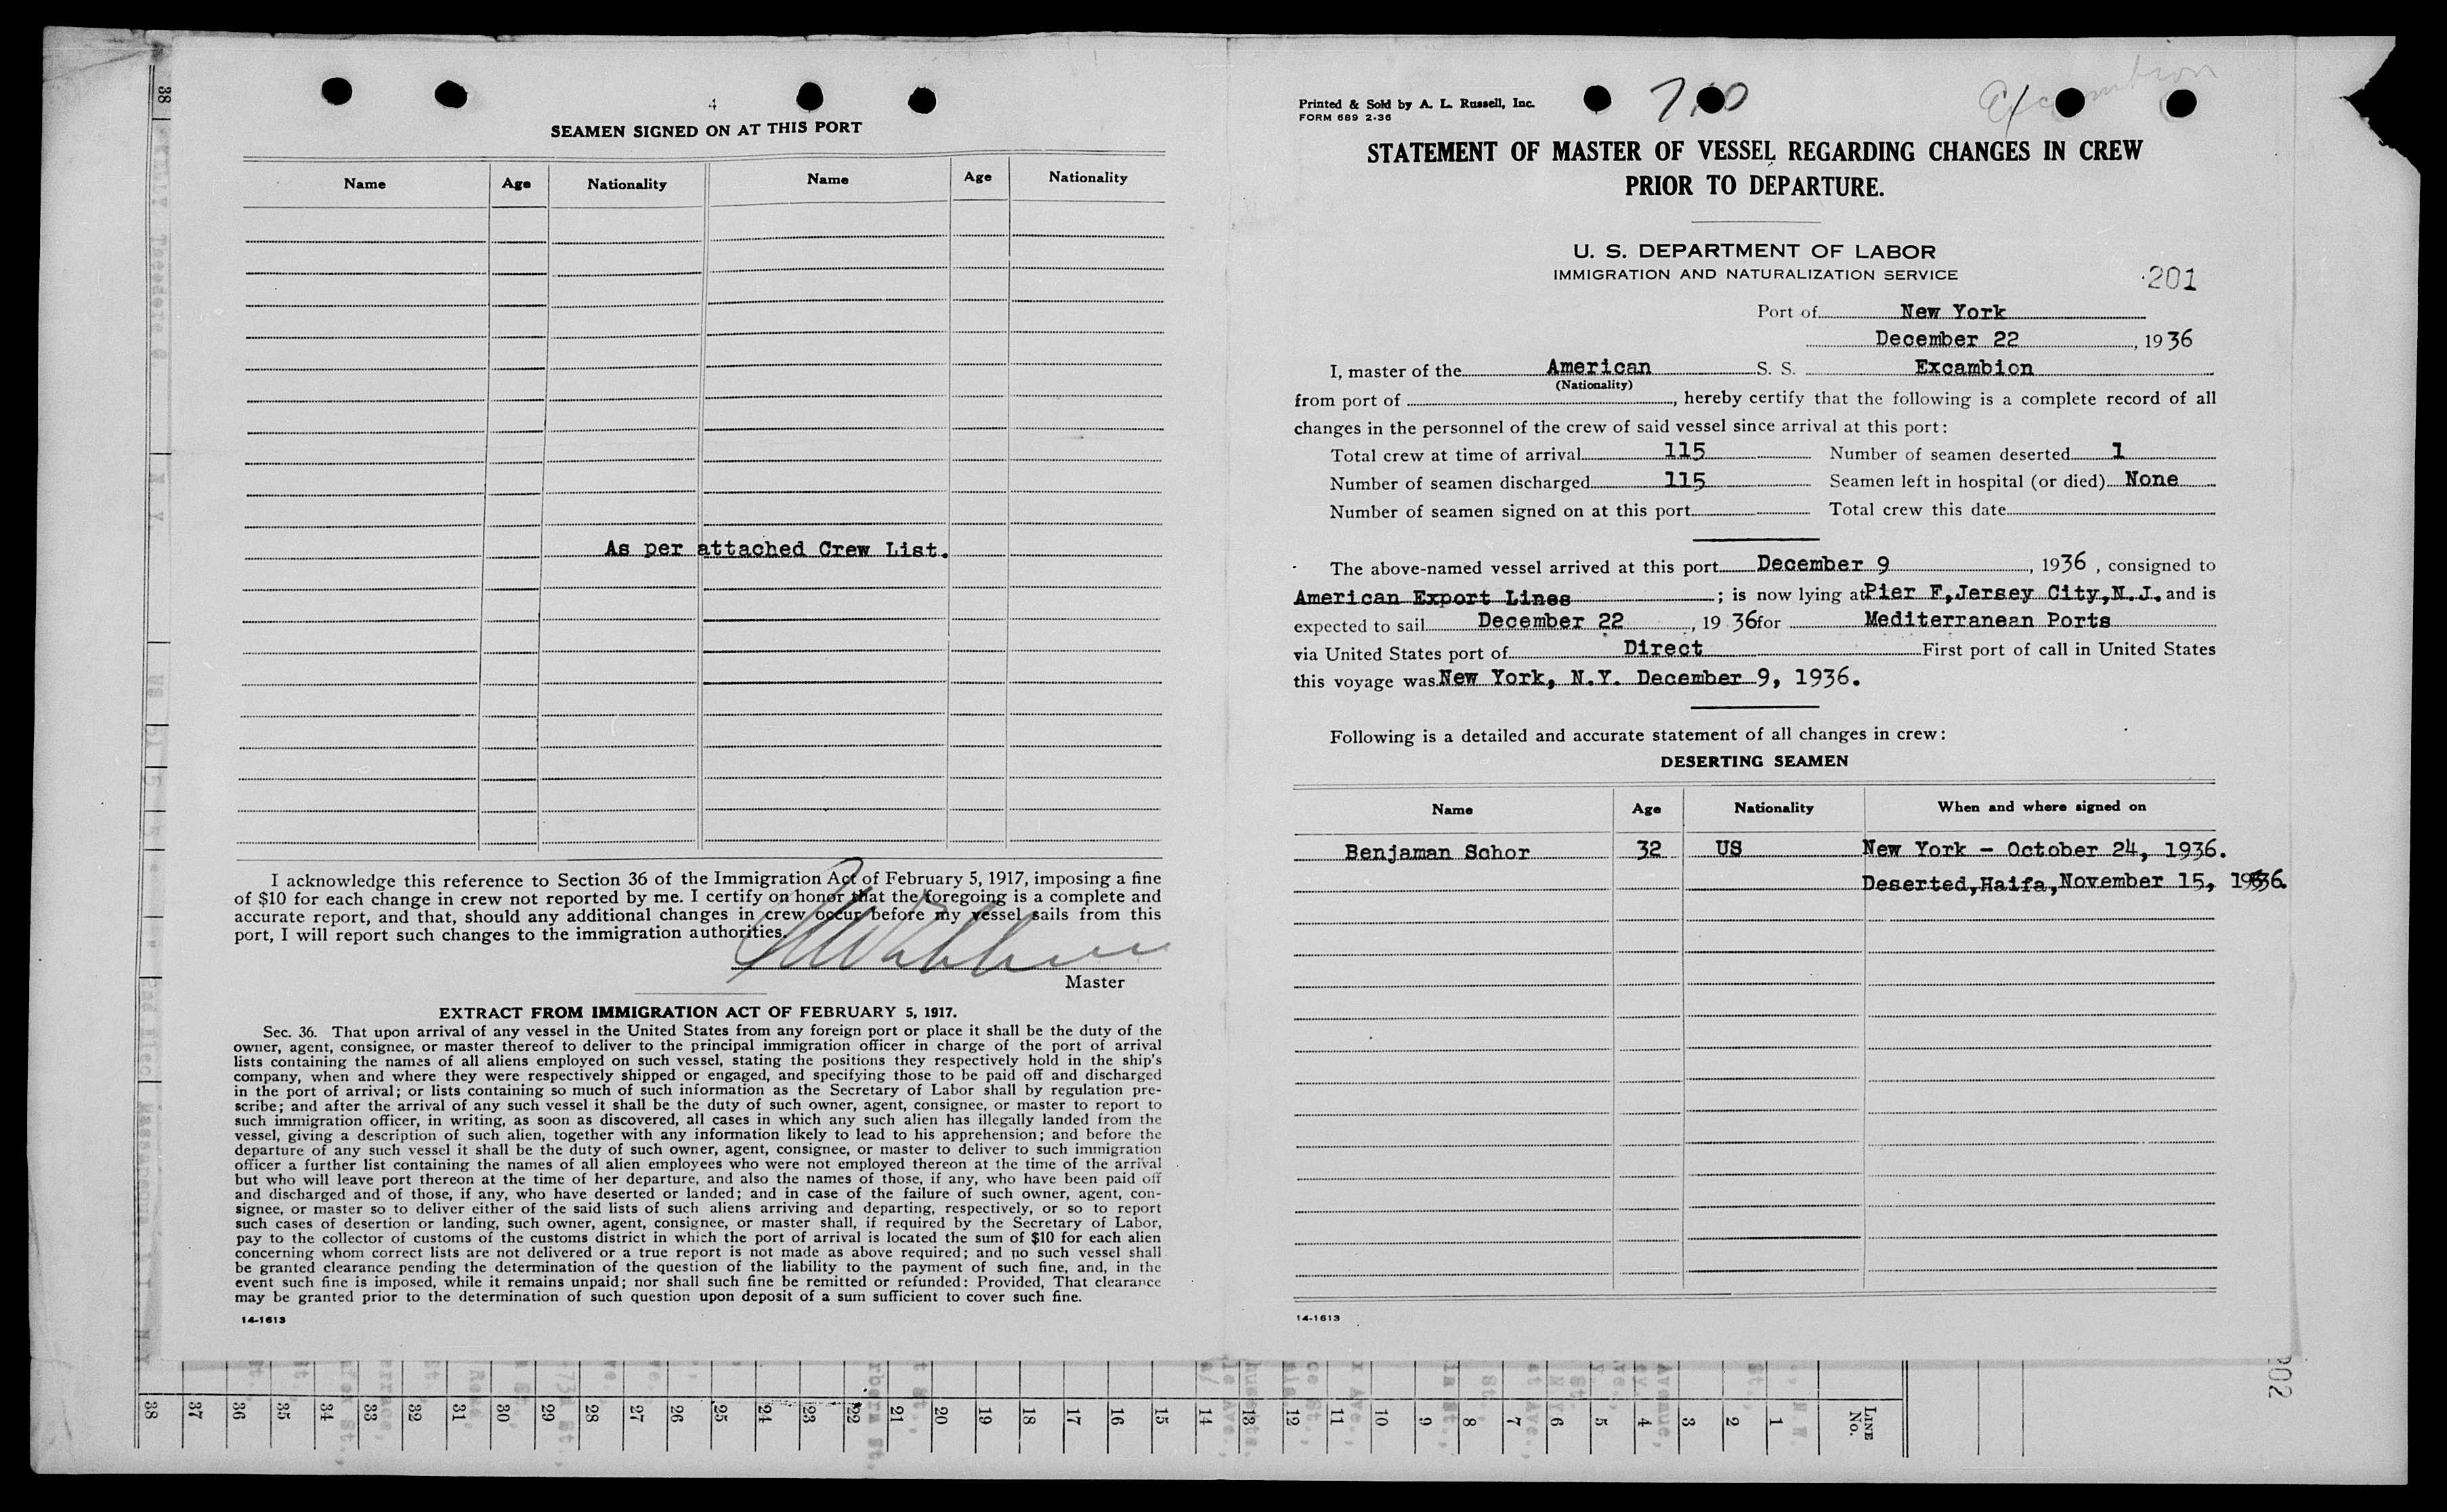 4
SEAMEN SIGNED ON AT THIS PORT
Name Age Nationality Name Age Nationality
As per attached Crew List.
I acknowledge this reference to Section 36 of the Immigration Act of February 5, 1917, imposing a fine
of $10 for each change in crew not reported by me. I certify on honor that the foregoing is a complete and
accurate report, and that, should any additional changes in crew occur before my vessel sails from this
port, I will report such changes to the immigration authorities.
Master
EXTRACT FROM IMMIGRATION ACT OF FEBRUARY 5, 1917.
Sec. 36. That upon arrival of any vessel in the United States from any foreign port or place it shall be the duty of the
owner, agent, consignee, or master thereof to deliver to the principal immigration officer in charge of the port of arrival
lists containing the names of all aliens employed on such vessel, stating the positions they respectively hold in the ship's
company, when and where they were respectively shipped or engaged, and specifying those to be paid off and discharged
in the port of arrival; or lists containing so much of such information as the Secretary of Labor shall by regulation pre-
scribe; and after the arrival of any such vessel it shall be the duty of such owner, agent, consignee, or master to report to
such immigration officer, in writing, as soon as discovered, all cases in which any such alien has illegally landed from the
vessel, giving a description of such alien, together with any information likely to lead to his apprehension; and before the
departure of any such vessel it shall be the duty of such owner, agent, consignee, or master to deliver to such immigration
officer a further list containing the names of all alien employees who were not employed thereon at the time of the arrival
but who will leave port thereon at the time of her departure, and also the names of those, if any, who have been paid off
and discharged and of those, if any, who have deserted or landed; and in case of the failure of such owner, agent, con-
signee, or master so to deliver either of the said lists of such aliens arriving and departing, respectively, or so to report
such cases of desertion or landing, such owner, agent, consignee, or master shall, if required by the Secretary of Labor,
pay to the collector of customs of the customs district in which the port of arrival is located the sum of $10 for each alien
concerning whom correct lists are not delivered or a true report is not made as above required; and no such vessel shall
be granted clearance pending the determination of the question of the liability to the payment of such fine, and, in the
event such fine is imposed, while it remains unpaid; nor shall such fine be remitted or refunded: Provided, That clearance
may be granted prior to the determination of such question upon deposit of a sum sufficient to cover such fine.
14-1613
Printed & Sold by A. L. Russell, Inc.
FORM 689 2-36
STATEMENT OF MASTER OF VESSEL REGARDING CHANGES IN CREW
PRIOR TO DEPARTURE.
U. S. DEPARTMENT OF LABOR
IMMIGRATION AND NATURALIZATION SERVICE
201
Port of New York
December 22, 1936
I, master of the American S. S. Excambion
(Nationality)
from port of , hereby certify that the following is a complete record of all
changes in the personnel of the crew of said vessel since arrival at this port:
Total crew at time of arrival 115 Number of seamen deserted 1
Number of seamen discharged 115 Seamen left in hospital (or died) None
Number of seamen signed on at this port Total crew this date
The above-named vessel arrived at this port December 9, 1936, consigned to
American Export Lines; is now lying at Pier F, Jersey City, N.J. and is
expected to sail December 22, 1936 for Mediterranean Ports
via United States port of Direct First port of call in United States
this voyage was New York, N.Y. December 9, 1936.
Following is a detailed and accurate statement of all changes in crew:
DESERTING SEAMEN
Name Age Nationality When and where signed on
Benjaman Schor 32 US New York - October 24, 1936.
Deserted, Haifa, November 15, 1936.
14-1613
38 37 36 35 34 33 32 31 30 29 28 27 26 25 24 23 22 21 20 19 18 17 16 15 14 13 12 11 10 9 8 7 6 5 4 3 2 1 LINE No.